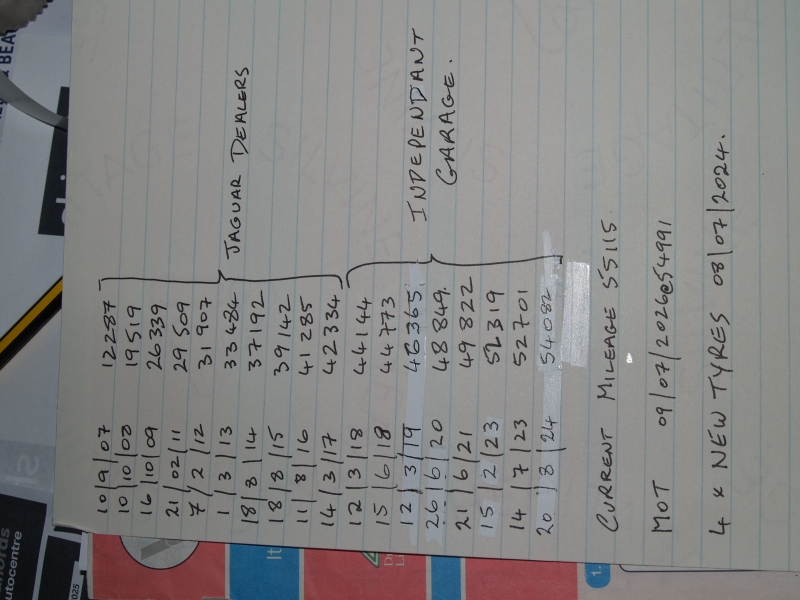 10/9/07 12287
10/10/08 19519
16/10/09 26339
21/02/11 29509
7/2/12 31907
1/3/13 33484
18/8/14 37192
18/8/15 39142
11/8/16 41285
14/3/17 42334
JAGUAR DEALERS
12/3/18 44144
15/6/18 44773
12/3/19 46365.
26/6/20 48849.
21/6/21 49822
15/2/23 52319
14/7/23 52701
20/8/24 54082
INDEPENDANT
GARAGE.
CURRENT MILEAGE 55115
MOT 09/07/2026@54991
4 x NEW TYRES 08/07/2024.
utocentre
2025
It
1.